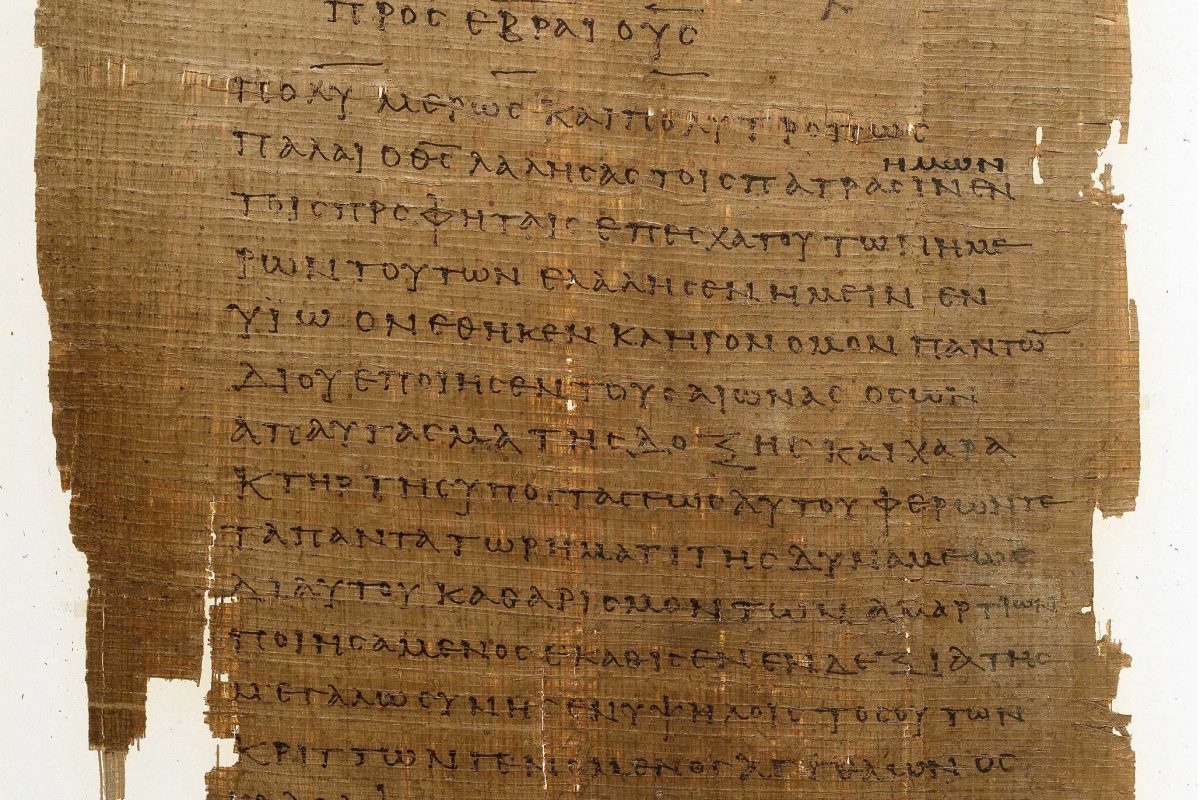 ΠΡΟϹ ΕΒΡΑΙΟΥϹ
ΠΟΛΥΜΕΡΩϹ ΚΑΙ ΠΟΛΥΤΡΟΠΩϹ
ΗΜΩΝ
ΠΑΛΑΙ Ο Θ̅Ϲ̅ ΛΑΛΗϹΑϹ ΤΟΙϹ ΠΑΤΡΑϹΙΝ ΕΝ
ΤΟΙϹ ΠΡΟΦΗΤΑΙϹ ΕΠ ΕϹΧΑΤΟΥ ΤΩΝ ΗΜΕ
ΡΩΝ ΤΟΥΤΩΝ ΕΛΑΛΗϹΕΝ ΗΜΕΙΝ ΕΝ
ΥΪΩ ΟΝ ΕΘΗΚΕΝ ΚΛΗΡΟΝΟΜΟΝ ΠΑΝΤΩ̅
ΔΙ ΟΥ ΕΠΟΙΗϹΕΝ ΤΟΥϹ ΑΙΩΝΑϹ ΟϹ ΩΝ
ΑΠΑΥΓΑϹΜΑ ΤΗϹ ΔΟΞΗϹ ΚΑΙ ΧΑΡΑ
ΚΤΗΡ ΤΗϹ ΥΠΟϹΤΑϹΕΩϹ ΑΥΤΟΥ ΦΕΡΩΝ ΤΕ
ΤΑ ΠΑΝΤΑ ΤΩ ΡΗΜΑΤΙ ΤΗϹ ΔΥΝΑΜΕΩϹ
ΔΙ ΑΥΤΟΥ ΚΑΘΑΡΙϹΜΟΝ ΤΩΝ ΑΜΑΡΤΙΩΝ
ΠΟΙΗϹΑΜΕΝΟϹ ΕΚΑΘΙϹΕΝ ΕΝ ΔΕΞΙΑ ΤΗϹ
ΜΕΓΑΛΩϹΥΝΗϹ ΕΝ ΥΨΗΛΟΙϹ ΤΟϹΟΥΤΩΝ
ΚΡΙΤΤΩΝ ΓΕΝΟΜΕΝΟϹ ΑΓΓΕΛΩΝ ΟϹ